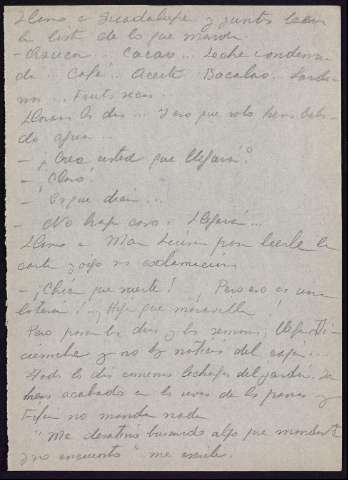 Llamo a Guadalupe y juntas leen
la lista de lo que manda
- Azucar... Cacao... Leche condensa-
da... Café... Aceite... Bacalao... Sardi-
nas... Frutas secas...
Lloran las dos... Y eso que solo hemos bebi-
do agua...
- ¡Cree usted que llegará?
- ¡Claro!
- Es que dicen...
- No hay caso. Llegará...
Llamo a Mari Luisa para leerle la
carta y oigo sus exclamaciones
- ¡Chica que suerte! ¡Pero eso es una
lotería! ¡Hija que maravilla!
Pero pasan los dias y las semanas, llega Di-
ciembre y no hay noticias del cajón...
Todos los dias comemos lechugas del jardín. Se
han acabado las uvas de las parras y
Fifi no manda nada
"Me desatino buscando algo que mandarte
y no encuentro" me escribe.